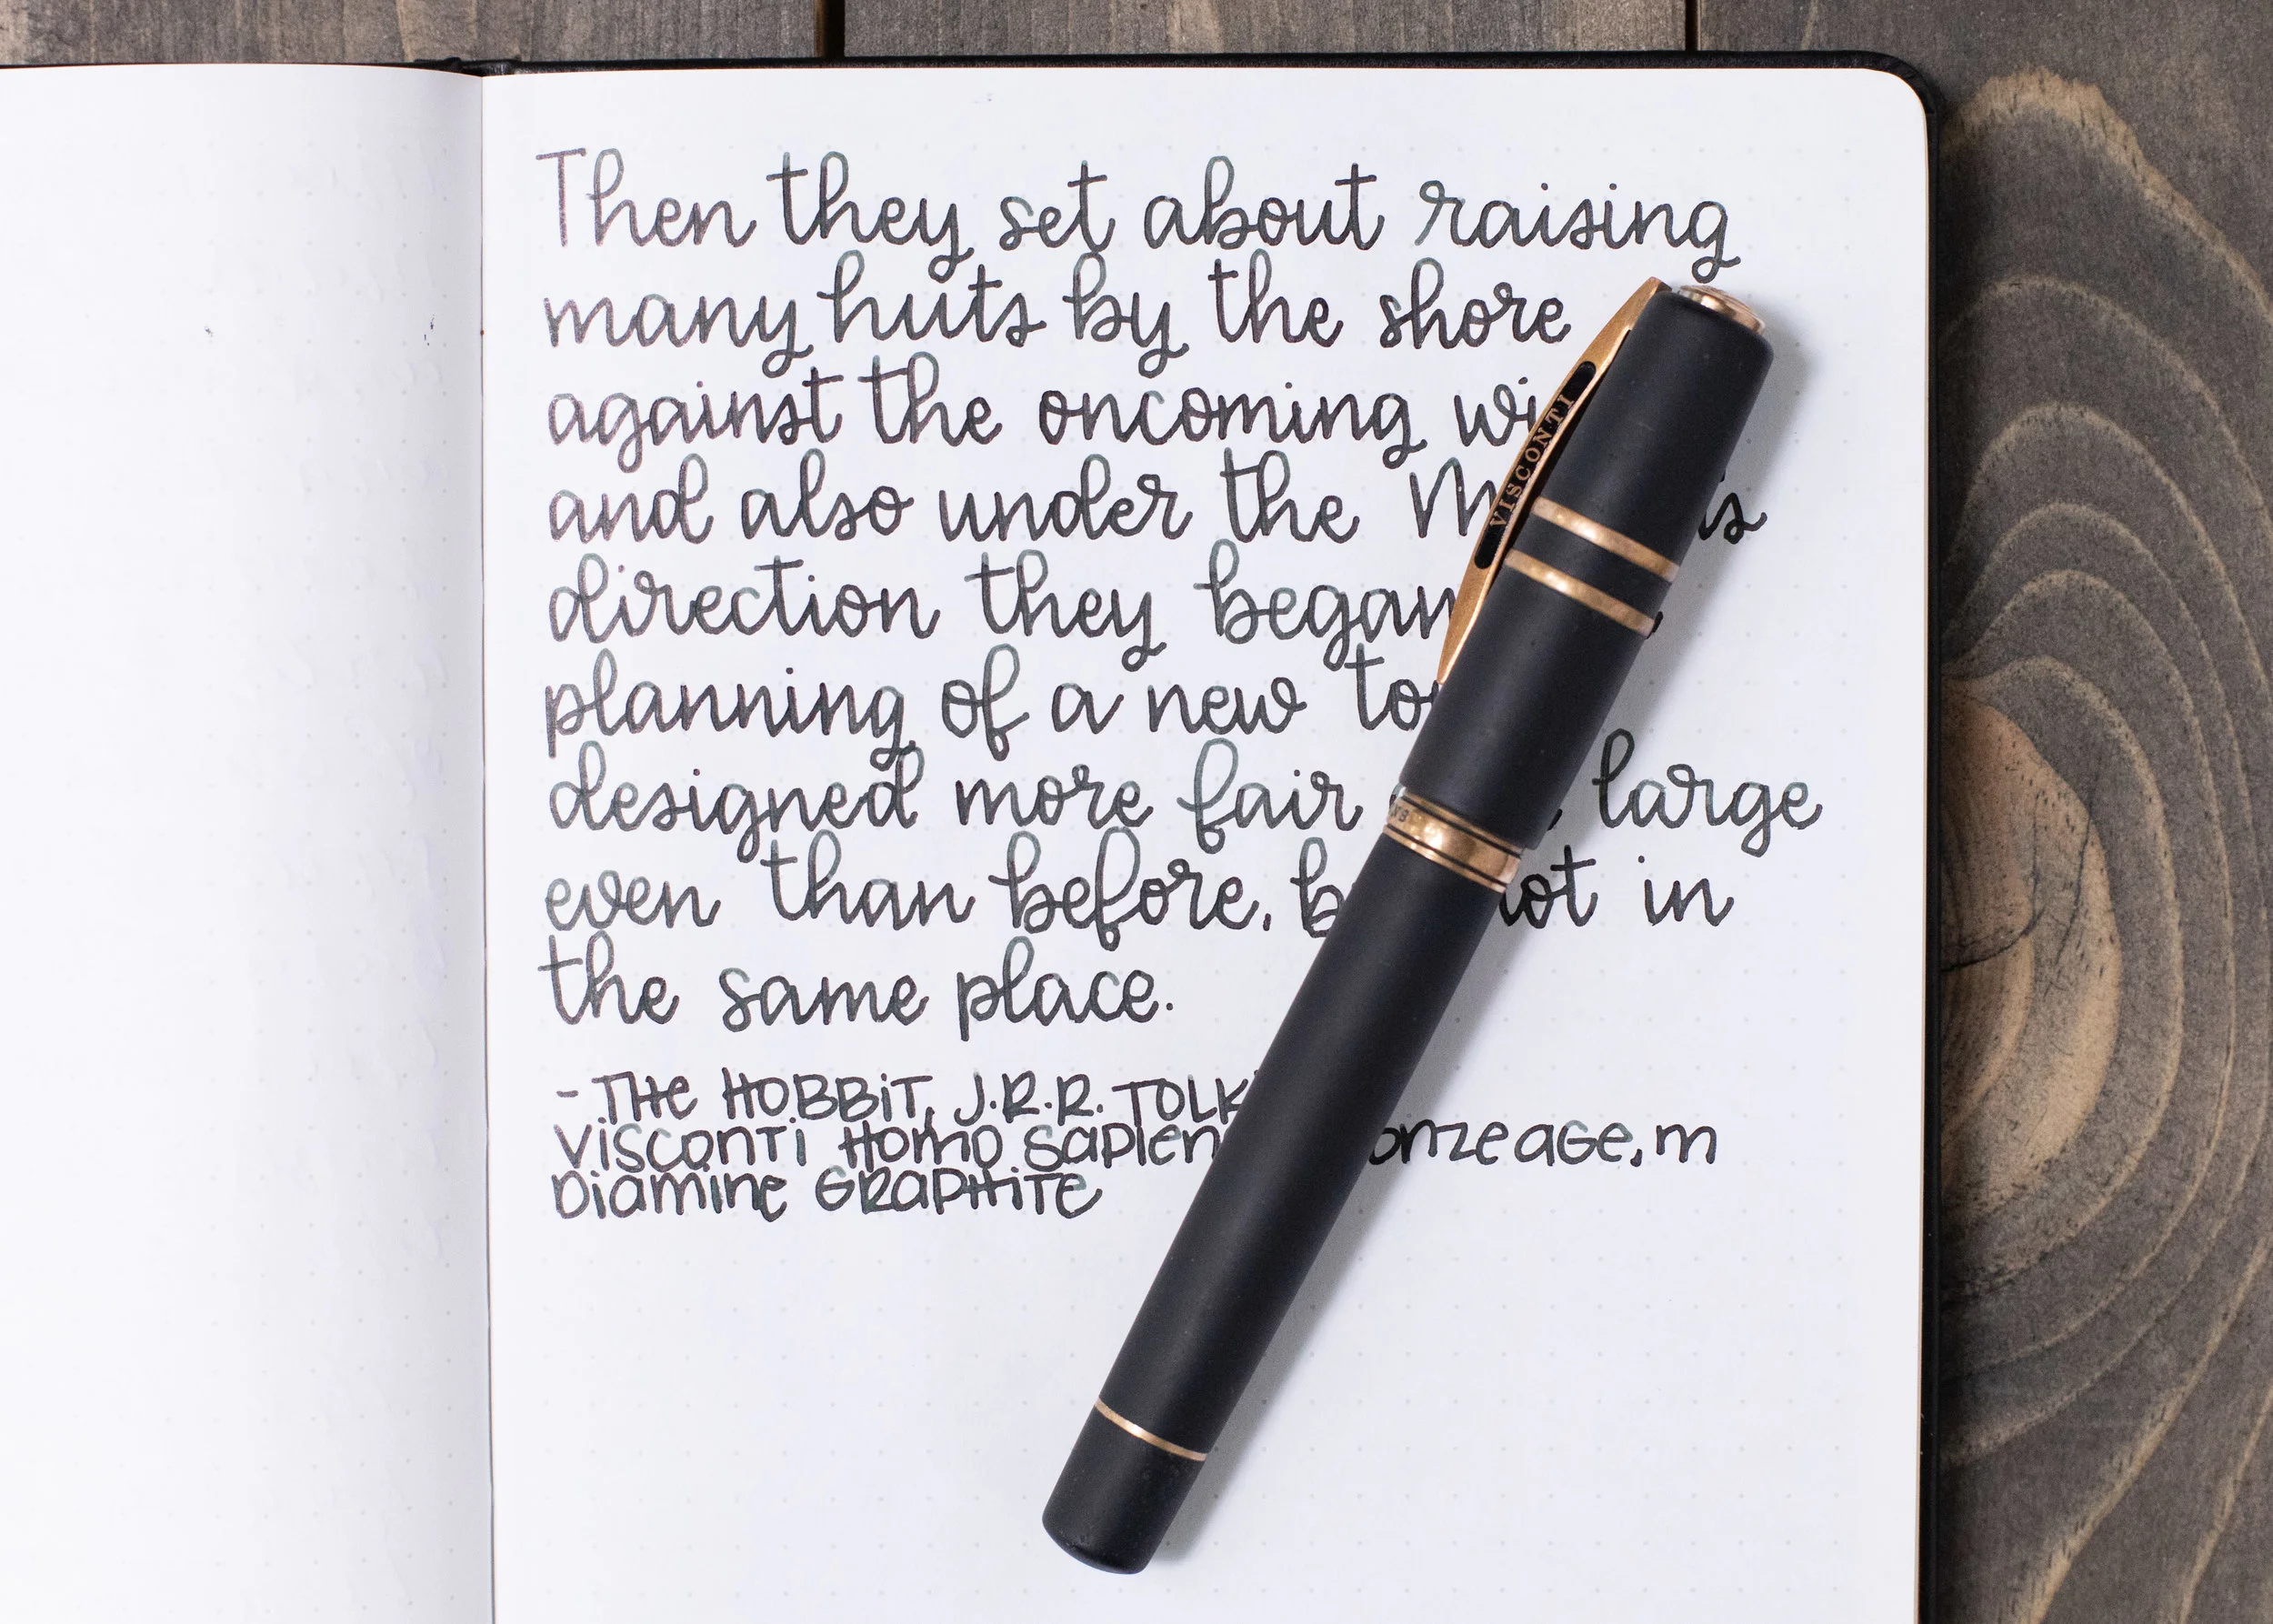 Then they set about raising
many huts by the shore
against the oncoming
and also under the
direction they began
planning of a new
designed more fair large
even than before, in
the same place.
- THE HOBBIT, J.R.R.
VISCONTI HOMO SAPIENS AGE, M
DIAMINE GRAPHITE
VISCONTI